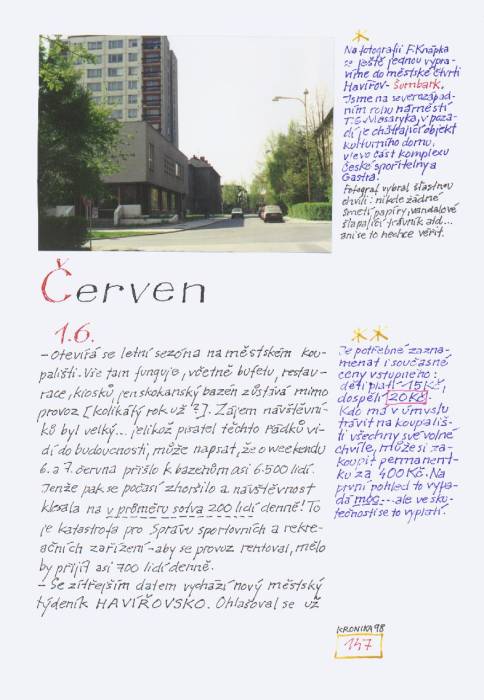 *
Na fotografii F. Knápka
se ještě jednou vypra-
víme do městské čtvrti
Havířov - Šumbark.
Jsme na severozápad-
ním rohu náměstí
T.G. Masaryka, v poza-
dí je chátrající objekt
kulturního domu,
vlevo část komplexu
České spořitelny a
Gastra.
Fotograf vybral šťastnou
chvíli: nikde žádné
smetí, papíry, vandalové
šlapající trávník atd...
ani se to nechce věřit.
Červen
1.6.
- Otevírá se letní sezóna na městském kou-
pališti. Vše tam funguje, včetně bufetu, restau-
race, kiosků, jen skokanský bazén zůstává mimo
provoz [kolikátý rok už?]. Zájem návštěvní-
ků byl velký... jelikož pisatel těchto řádků vi-
dí do budoucnosti, může napsat, že o weekendu
6. a 7. června přišlo k bazénům asi 6.500 lidí.
Jenže pak se počasí zhoršilo a návštěvnost
klesla na v průměru sotva 200 lidí denně! To
je katastrofa pro Správu sportovních a rekre-
ačních zařízení - aby se provoz rentoval, mělo
by přijít asi 700 lidí denně.
- Se zítřejším datem vychází nový městský
týdeník HAVÍŘOVSKO. Ohlašoval se už
**
Je potřebné zazna-
menat i současné
ceny vstupného:
děti platí 15 Kč,
dospělí 20 Kč.
Kdo má v úmyslu
trávit na koupališ-
ti všechny své volné
chvíle, může si za-
koupit permanent-
ku za 400 Kč. Na
první pohled to vypa-
dá moc... ale ve sku-
tečnosti se to vyplatí.
KRONIKA 98
147